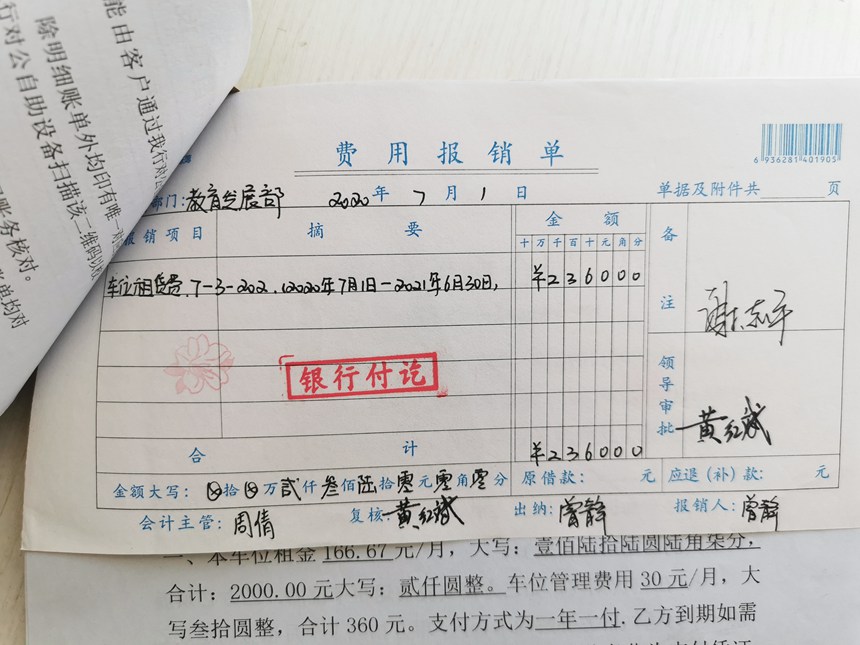 能由客户通过我行对
除明细账单外均印有唯一对
行对公自助设备扫描该二维码以
账务核对。
账单均对
费用报销单
6 936281 401905
部门:教育发展部 2020年 7月 1日 单据及附件共 页
报销项目 摘要 金额 备注
十万千百十元角分
车位租赁费.7-3-202.(2020年7月1日-2021年6月30日, ¥236000
谢志平
银行付讫
领导审批 黄红斌
合计 ¥236000
金额大写: ⊗拾⊗万贰仟叁佰陆拾零元零角零分 原借款: 元 应退(补)款: 元
会计主管:周倩 复核:黄红斌 出纳:曾静 报销人:曾静
一、本车位租金166.67元/月,大写:壹佰陆拾陆圆陆角柒分,
合计:2000.00元大写:贰仟圆整。车位管理费用30元/月,大
写叁拾圆整,合计360元。支付方式为一年一付.乙方到期如需